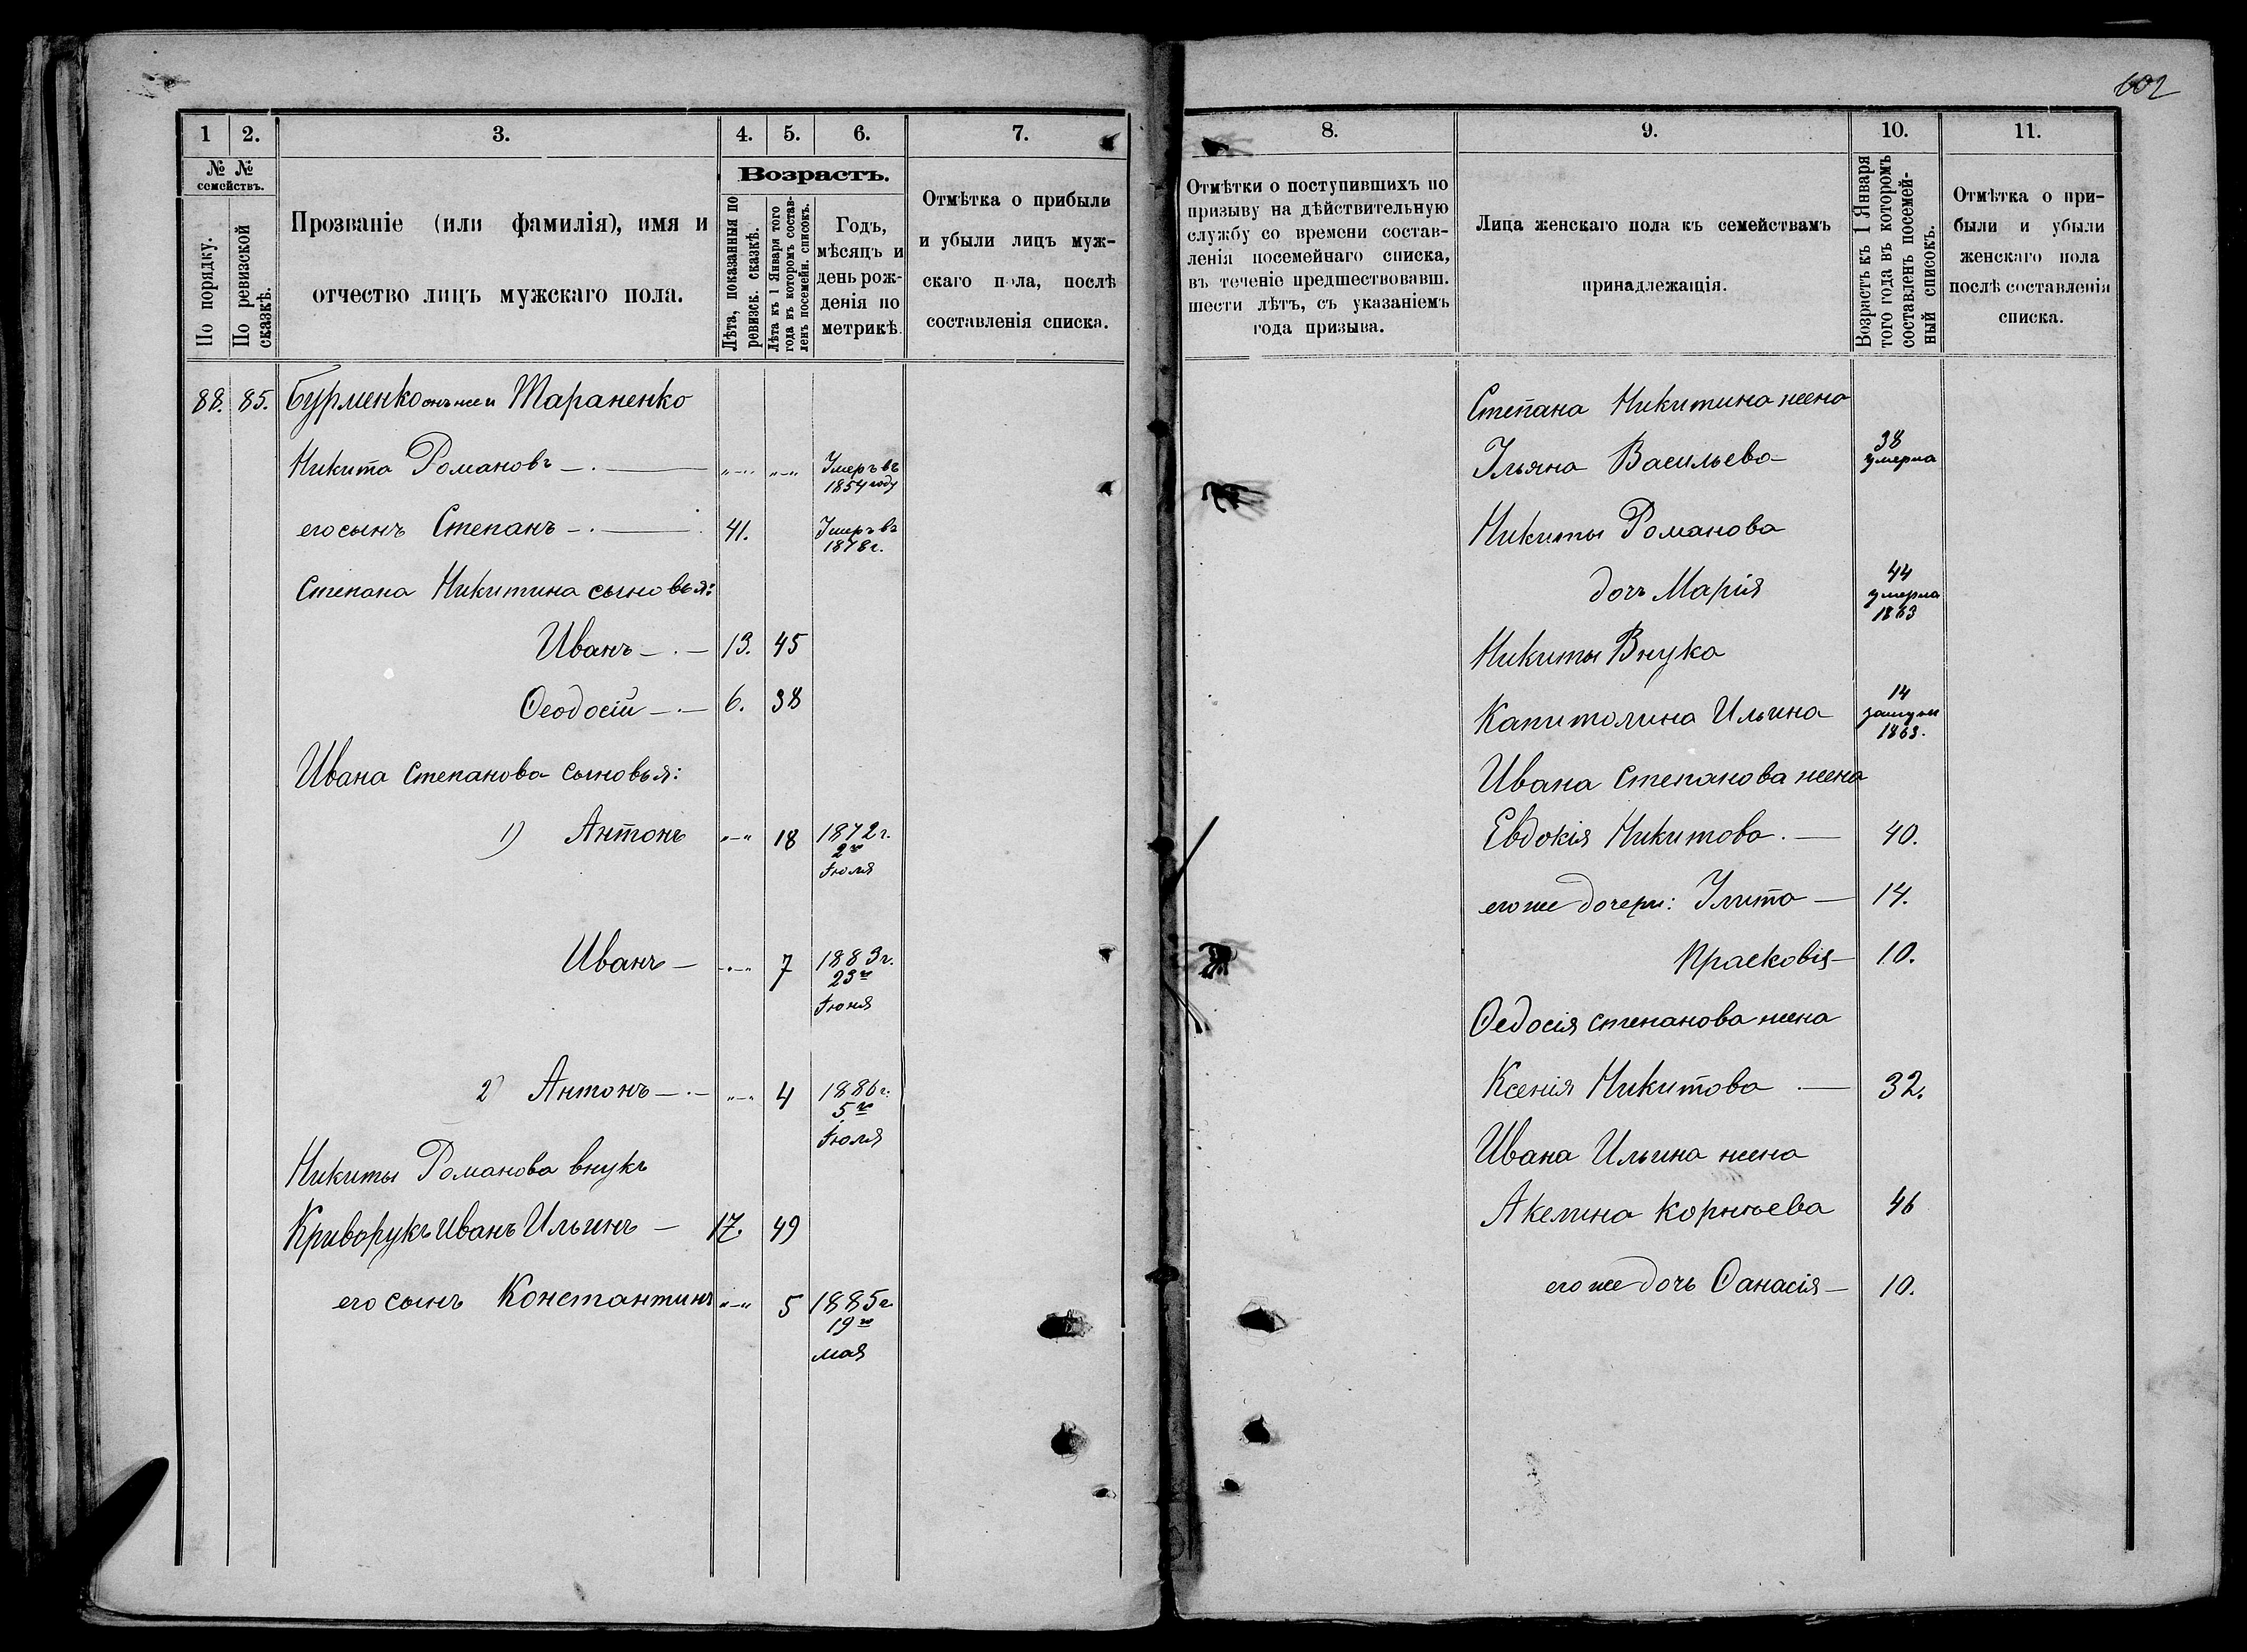 602
1 2. 3. 4. 5. 6. 7.
№ № семействъ.
По порядку.
По ревизской сказкѣ.
Прозваніе (или фамилія), имя и
отчество лицъ мужскаго пола.
Возрастъ.
Лѣта, показанныя по
ревизск. сказкѣ.
Лѣта къ 1 Января того
года въ которомъ состав-
ленъ посемейн. списокъ.
Годъ,
мѣсяцъ и
день рож-
денія по
метрикѣ.
Отмѣтка о прибыли
и убыли лицъ муж-
скаго пола, послѣ
составленія списка.
88. 85. Бурменко онъ же и Тараненко
Никита Романовъ — „—„ „—„ Умеръ въ
1854 году
его сынъ Степанъ — 41. Умеръ въ
1878 г.
Степана Никитина сыновья:
Иванъ — 13. 45
Ѳеодосій — 6. 38
Ивана Степанова сыновья:
1) Антонъ „—„ 18 1872 г.
2го
Іюля
Иванъ — „—„ 7 1883 г.
23го
Іюня
2) Антонъ — „—„ 4 1886 г.
5го
Іюля
Никиты Романова внукъ
Криворукъ Иванъ Ильинъ — 17. 49
его сынъ Константинъ „—„ 5 1885 г.
19го
мая
8. 9. 10. 11.
Отмѣтки о поступившихъ по
призыву на дѣйствительную
службу со времени состав-
ленія посемейнаго списка,
въ теченіе предшествовавш.
шести лѣтъ, съ указаніемъ
года призыва.
Лица женскаго пола къ семействамъ
принадлежащія.
Возрастъ къ 1 Января
того года въ которомъ
составленъ посемей-
ный списокъ.
Отмѣтка о при-
были и убыли
женскаго пола
послѣ составленія
списка.
Степана Никитина жена
Ульяна Васильева 38
умерла
Никиты Романова
дочь Марія 44
умерла
1863
Никиты Внука
Капитолина Ильина 14
замужъ
1863.
Ивана Степанова жена
Евдокія Никитова. — 40.
его же дочери: Улита — 14.
Прасковія — 10.
Ѳедосія степанова жена
Ксенія Никитова — 32.
Ивана Ильина жена
Акелина Корнѣева 46
его же дочь Ѳанасія — 10.